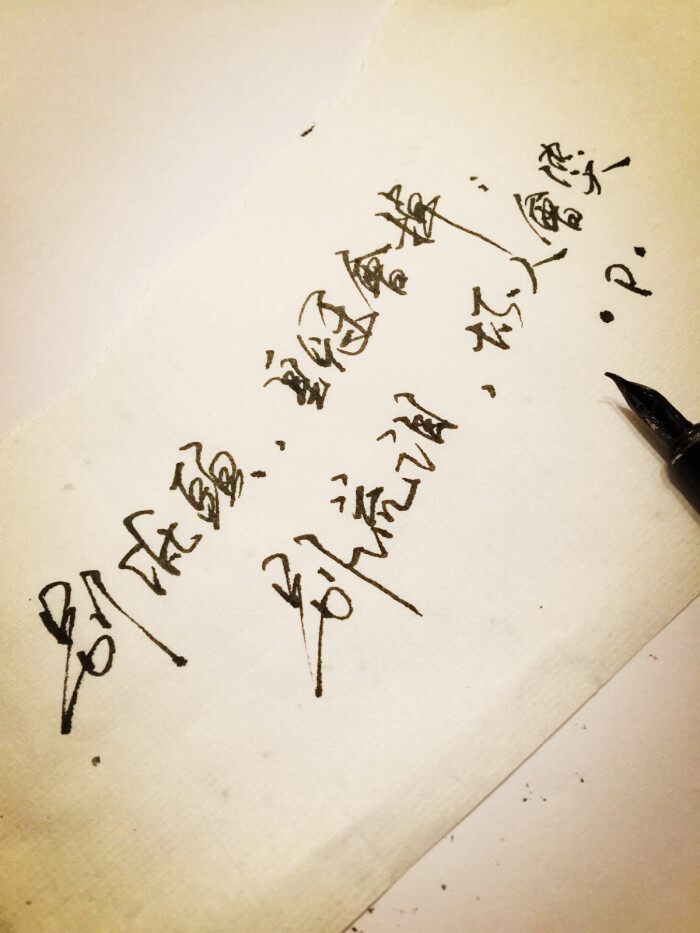 别低頭，皇冠會掉；
别流泪，坏人會笑
.P.